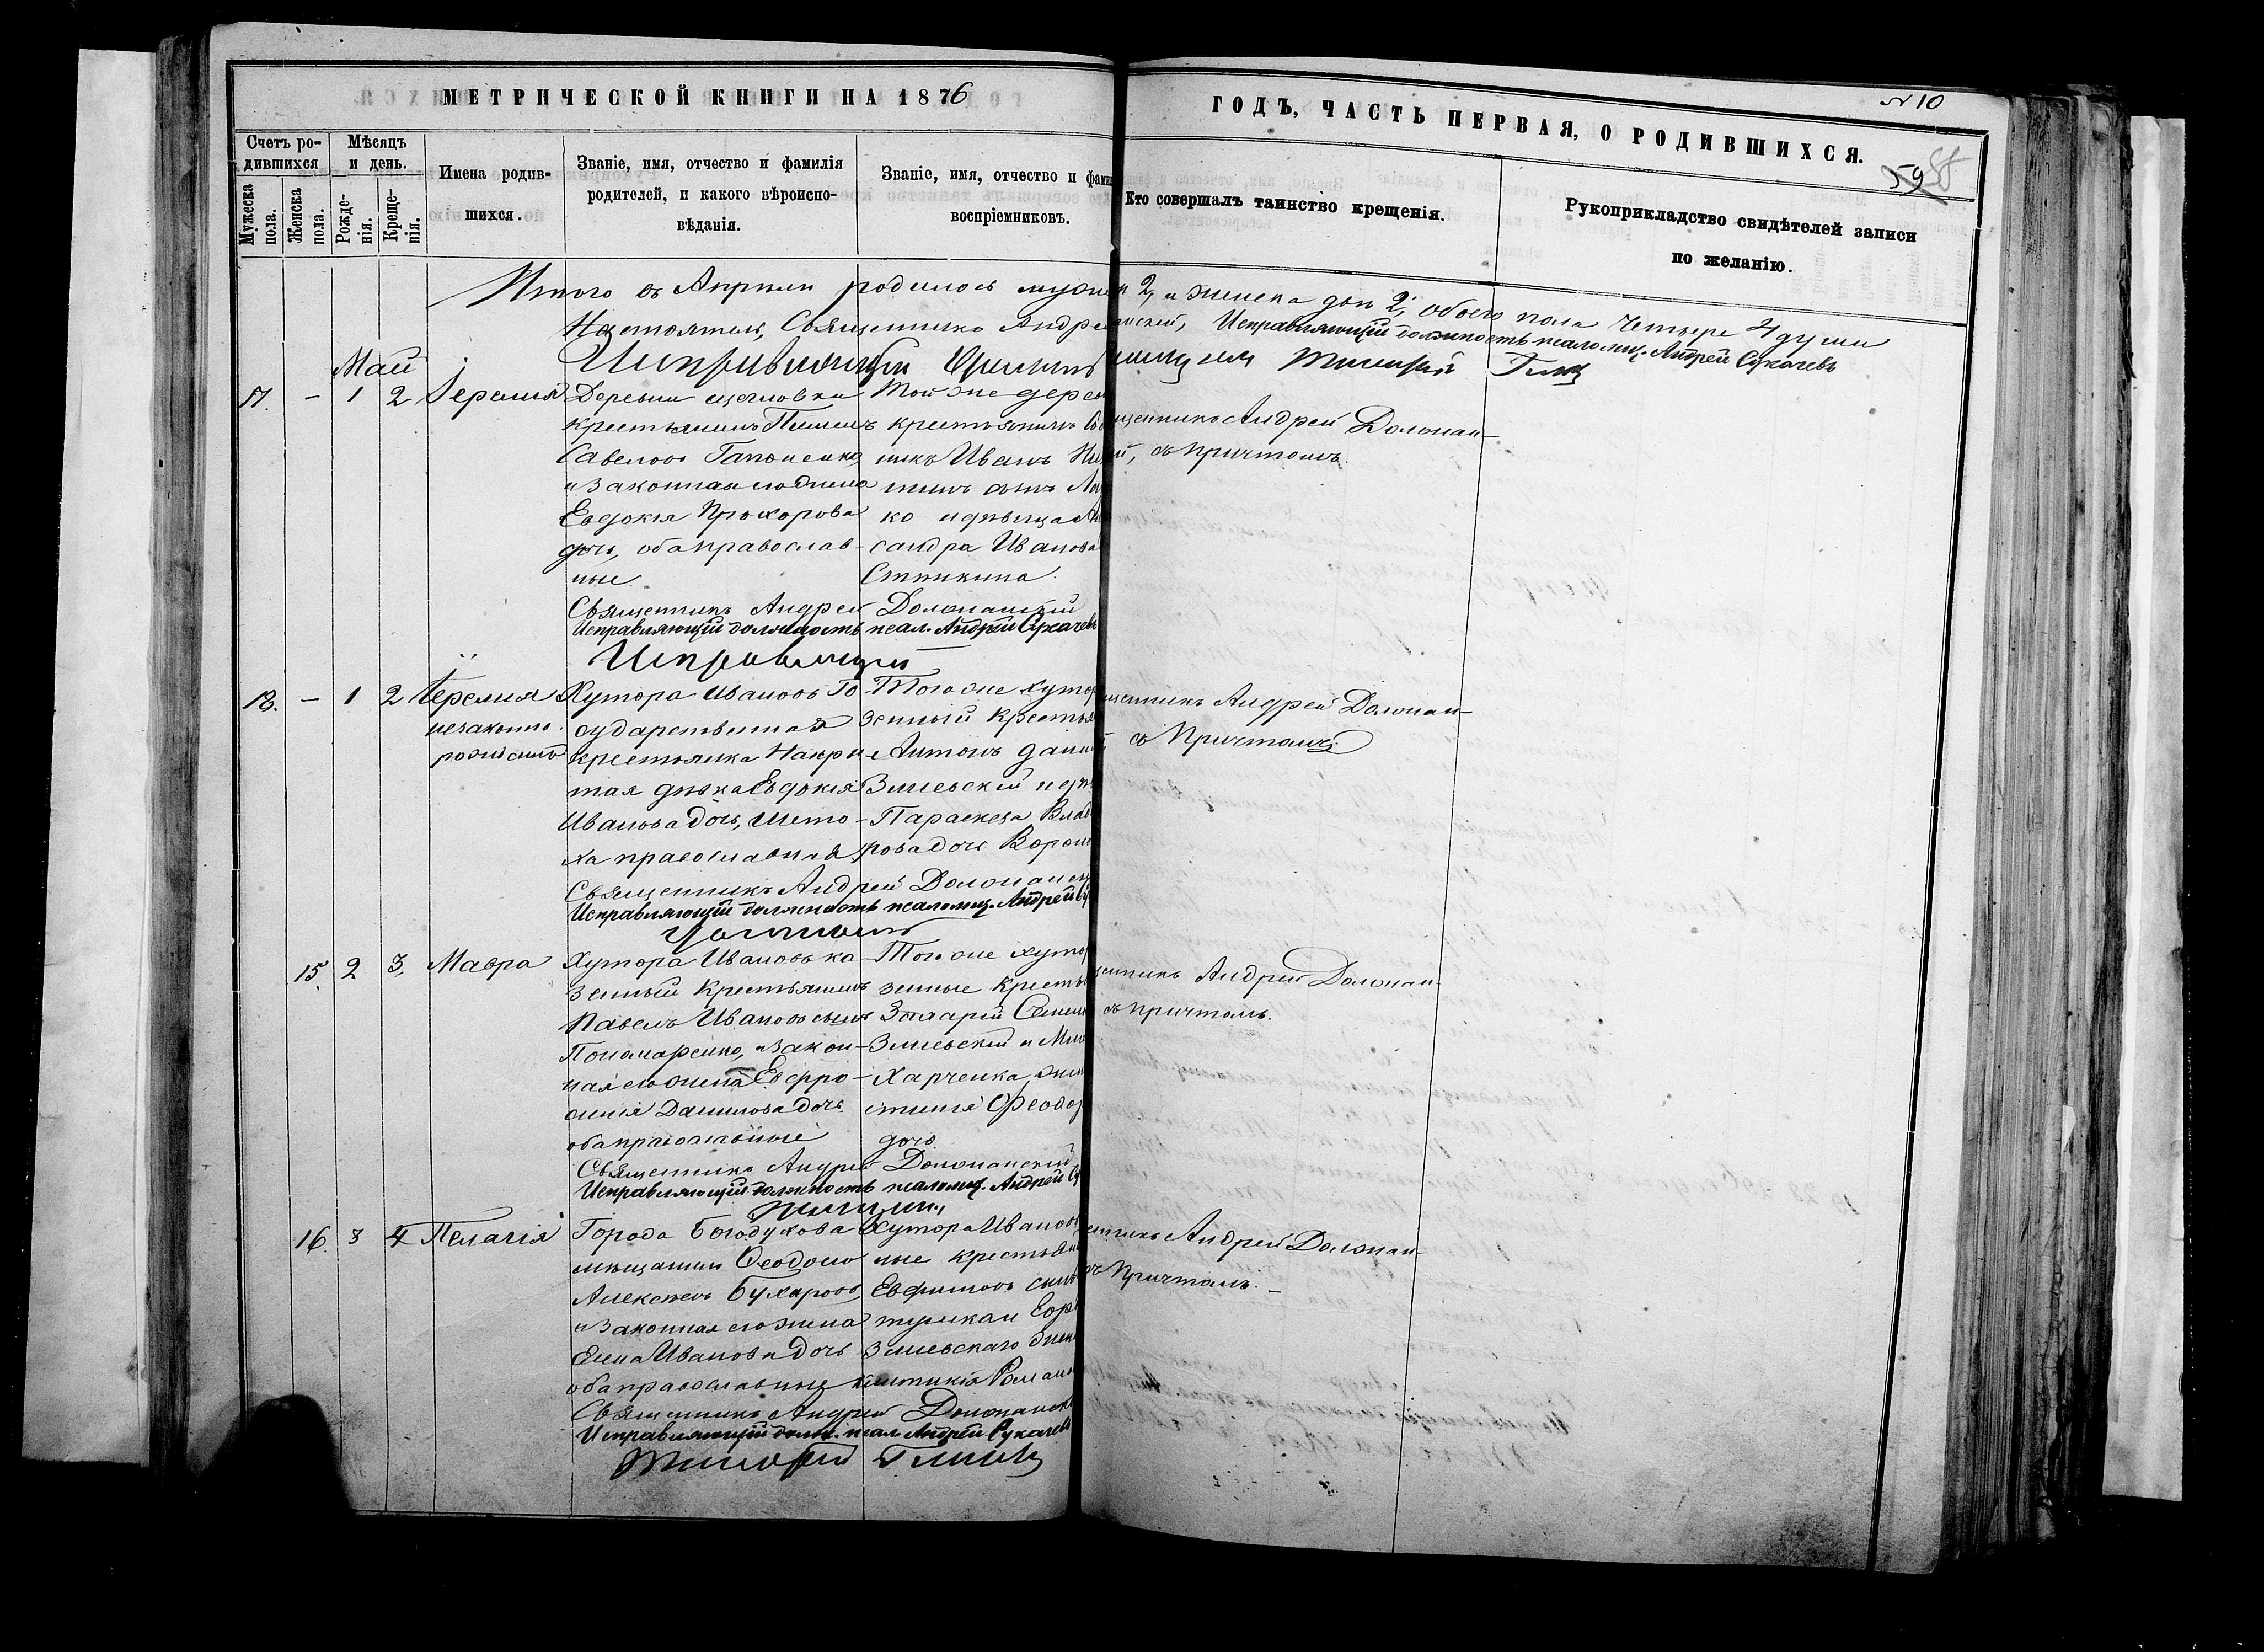 МЕТРИЧЕСКОЙ КНИГИ НА 1876
ГОДЪ, ЧАСТЬ ПЕРВАЯ, О РОДИВШИХСЯ.
№ 10
59 58
Счетъ ро-
дившихся
Мужеска
пола.
Женска
пола.
Мѣсяцъ
и день.
Рожде-
нія.
Креще-
нія.
Имена родив-
шихся.
Званіе, имя, отчество и фамилія
родителей, и какого вѣроиспо-
вѣданія.
Званіе, имя, отчество и фами
воспріемниковъ.
Кто совершалъ таинство крещенія.
Рукоприкладство свидѣтелей записи
по желанію.
Итого въ Априли родилось мужск 2, и женска два 2; обоего пола Четыре 4 души
Настоятель, Священникъ Андрей Исправляющій должность псаломщ. Андрей Сукачевъ
Исправляющій
Май
17. – 1 2 Іеремія
Деревни
крестьянинъ Пименъ
Савеловъ Гапоненко
и законная его жена
Евдокія Прохорова
дочь, оба православ-
ные.
Той же дерев
крестьянинъ Соб
никъ Иванъ Ни
тинъ сынъ Ла
ко и дѣвица Ал
сандра Иванова
щенникъ Андрей Доломан-
й, съ Причтомъ.
Священникъ Андрей Доломанскій
Исправляющій должность псал. Андрей Сукачевъ
Исправляющій
18. – 1 2 Іеремія
незаконно-
рожденъ
Хутора Иванова Го-
сударственная
крестьянка Накры-
тая дѣвка Евдокія
Иванова дочь, Шето-
ха православная
Того же хутор
зенный крестья
Антонъ Дани
Зміевскій и дѣв
Параскева Влад
рова дочь Ворон
щенникъ Андрей Доломан-
й съ Причтомъ
Священникъ Андрей Доломанск
Исправляющій должность псаломщ. Андрей Су
15. 2 3. Мавра
Хутора Иванова ка-
зенный Крестьянинъ
Павелъ Ивановъ сынъ
Пономаренко, и закон-
ная его жена Евфро-
синія Данилова дочь
оба православные
Того же хутор
зенные Кресть
Захарій Семен
Зміевскій и
Харченка жен
Феодор
дочь
щенникъ Андрей Доломан-
съ Причтомъ.
Священникъ Андрей Доломанскій
Исправляющій должность псаломщ. Андрей Су
16. 3 4 Пелагія
Города Богодухова
мѣщанин Феодосій
Алексѣевъ Бухаровъ,
и законная его жена
Елена Иванова дочь
оба православные
Хутора Иванов
ные крестьян
Евфимовъ сынъ
Зміевскаго жен
Роман
щенникъ Андрей Доломан-
съ Причтомъ. –
Священникъ Андрей Доломанск
Исправляющій должн. псал Андрей Сукачевъ
Тимофей